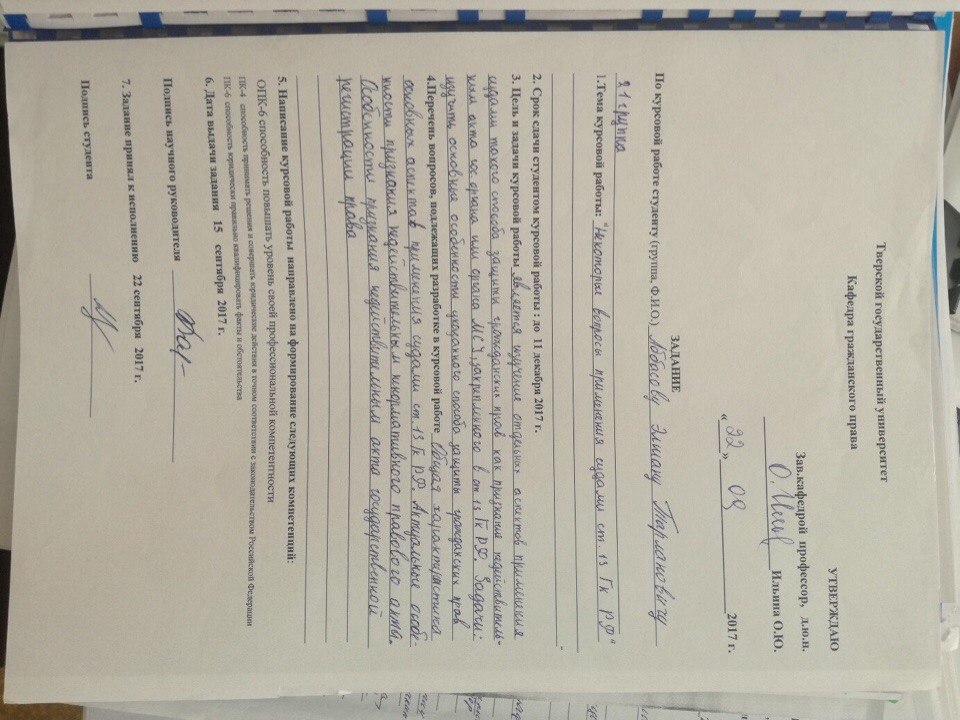 Тверской государственный университет
Кафедра гражданского права
УТВЕРЖДАЮ
Зав.кафедрой профессор, д.ю.н.
Ильина О.Ю.
«22» 09 2017 г.
ЗАДАНИЕ
По курсовой работе студенту (группа, Ф.И.О.) Аббасову Эльшану Тармановичу
21 группа
1.Тема курсовой работы: "Некоторые вопросы применения судами ст. 13 ГК РФ"
2. Срок сдачи студентом курсовой работы : до 11 декабря 2017 г.
3. Цель и задачи курсовой работы является изучение отдельных аспектов применения
судами такого способа защиты гражданских прав как признание недействитель-
ным акта гос органа или органа МСУ, закрепленного в ст 13 ГК РФ. Задачи:
изучить основные особенности указанного способа защиты гражданских прав
4.Перечень вопросов, подлежащих разработке в курсовой работе Общая характеристика
основных аспектов применения судами ст. 13 ГК РФ. Актуальные особе-
нности признания недействительным ненормативного правового акты.
Особенности признания недействительным акта государственной
регистрации права
5. Написание курсовой работы направлено на формирование следующих компетенций:
ОПК-6 способность повышать уровень своей профессиональной компетентности
ПК-4 способность принимать решения и совершать юридические действия в точном соответствии с законодательством Российской Федерации
ПК-6 способность юридически правильно квалифицировать факты и обстоятельства
6. Дата выдачи задания 15 сентября 2017 г.
Подпись научного руководителя
7. Задание принял к исполнению 22 сентября 2017 г.
Подпись студента